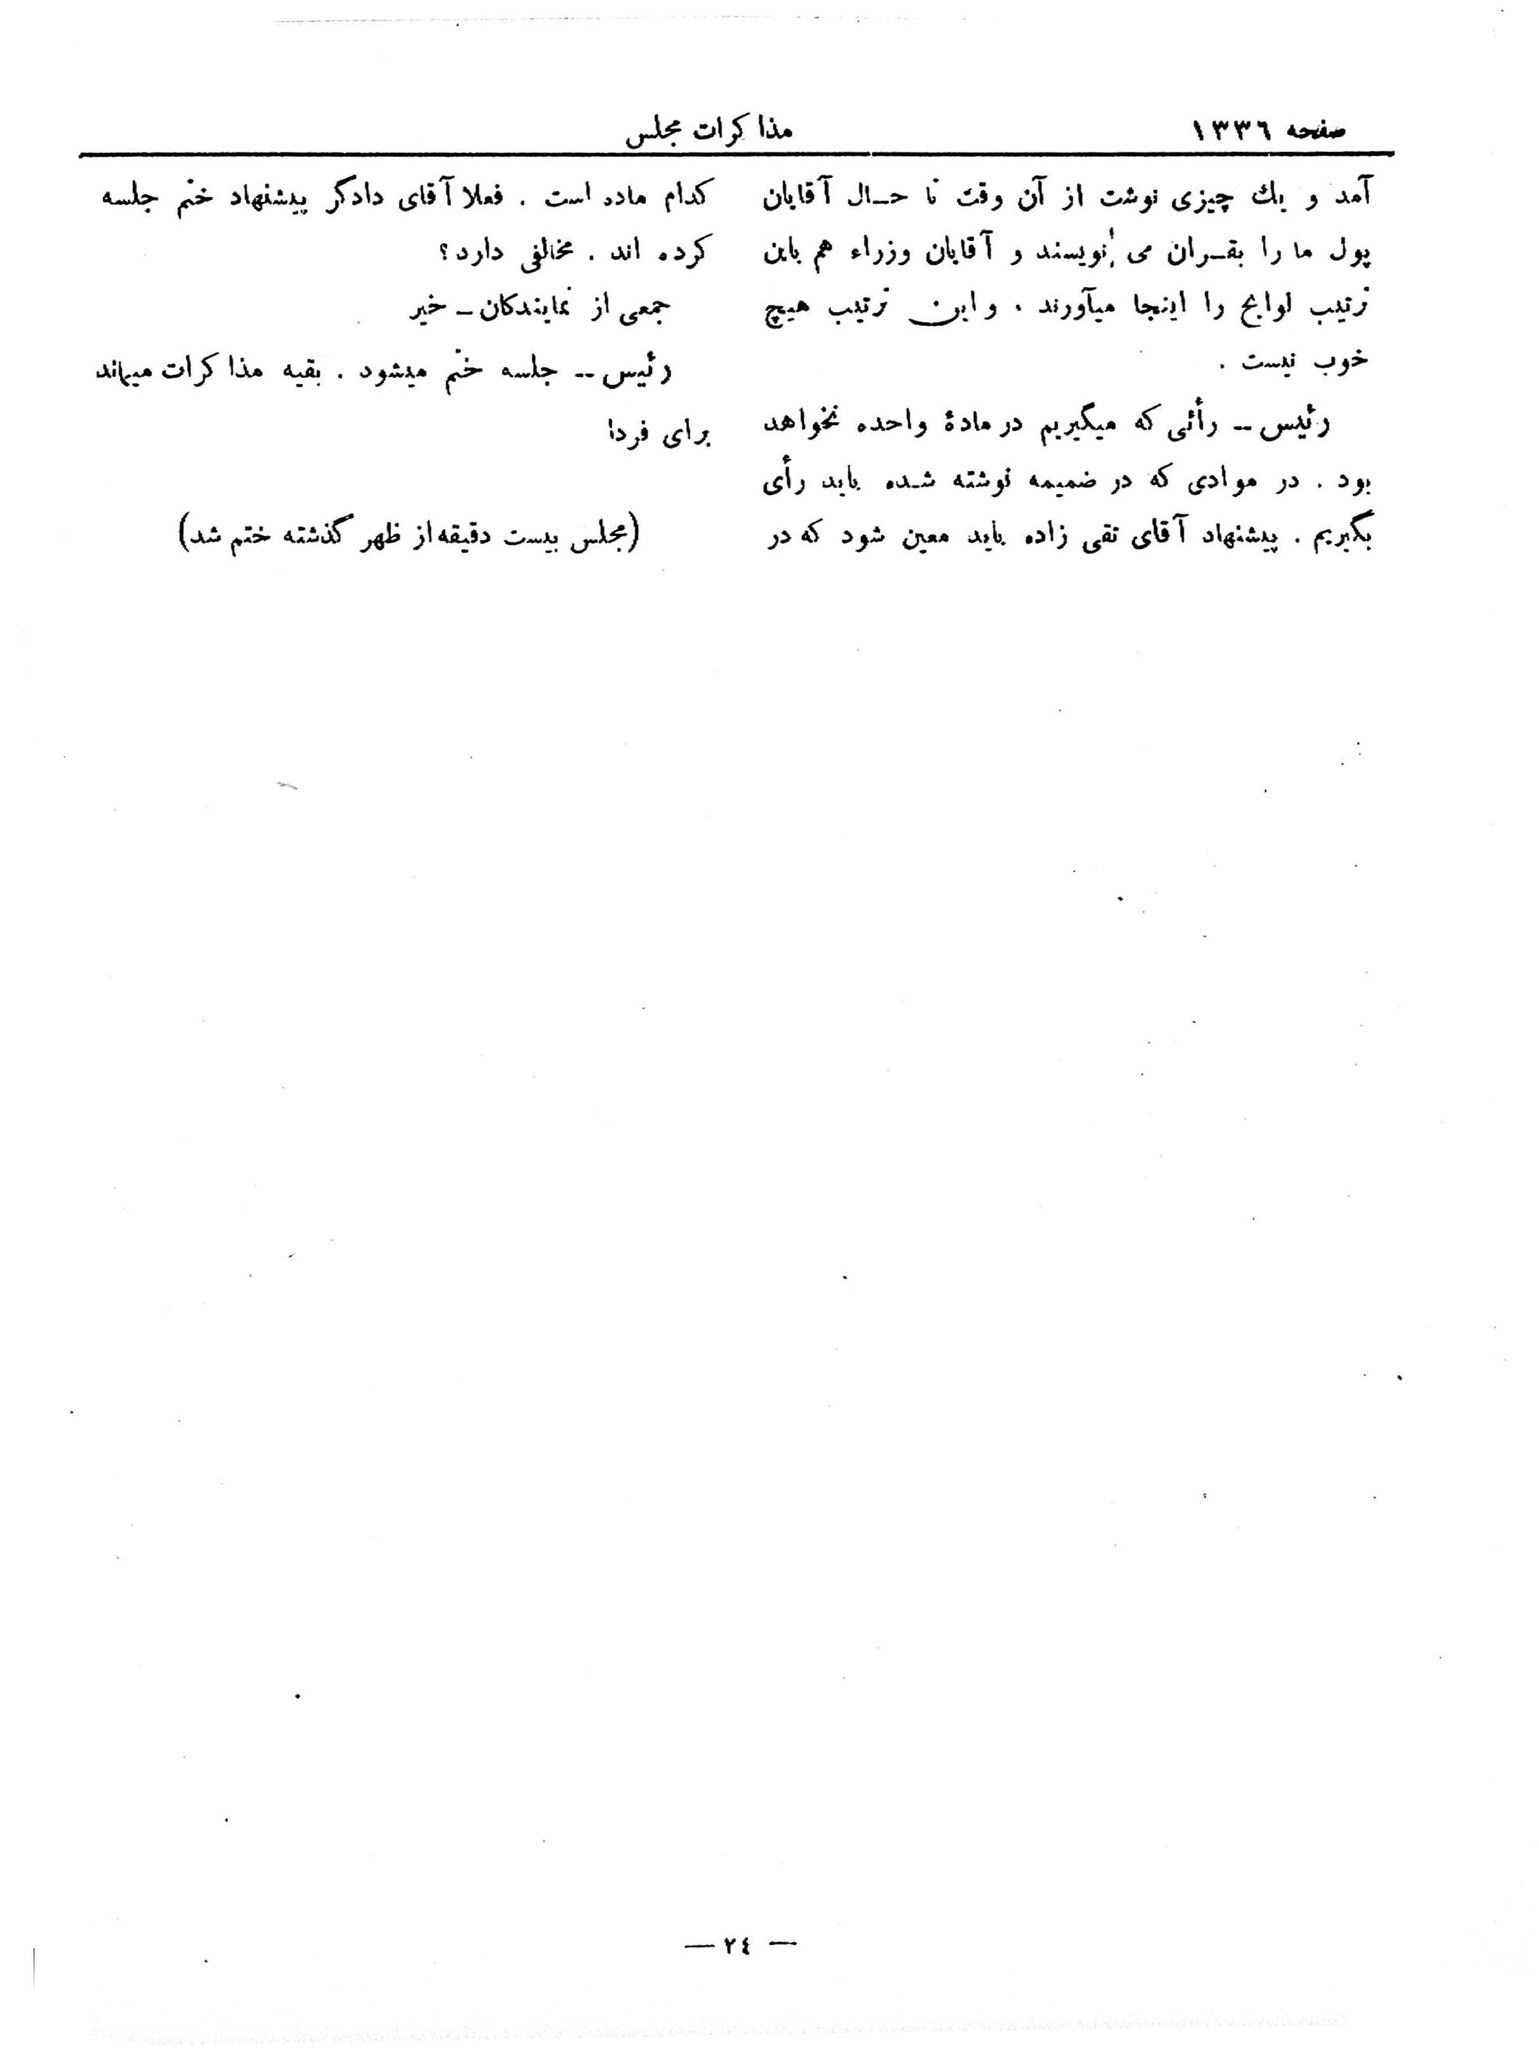 صفحه ۱۳۳۶
مذاکرات مجلس
آمد و یك چیزی نوشت از آن وقت تا حـال آقایان
پول ما را بقـران می نویسند و آقایان وزراء هم باین
ترتیب لوایح را اینجا میآورند . و این ترتیب هیچ
خوب نیست .
رئیس ـ رأئی که میگیریم در مادۀ واحده نخواهد
بود . در موادی که در ضمیمه نوشته شده باید رأی
بگیریم . پیشنهاد آقای تقی زاده باید معین شود که در
کدام ماده است . فعلا آقای دادگر پیشنهاد ختم جلسه
کرده اند . مخالفی دارد؟
جمعی از نمایندکان ـ خیر
رئیس ـ جلسه ختم میشود . بقیه مذاکرات میماند
برای فردا
(مجلس بیست دقیقه از ظهر گذشته ختم شد)
— ۲٤ —